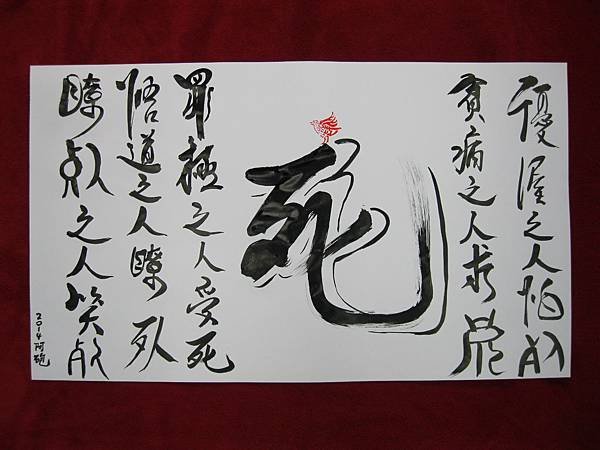 優渥之人怕死
貧病之人求死
死
罪極之人受死
悟道之人瞭死
瞭死之人笑死
2014阿砲